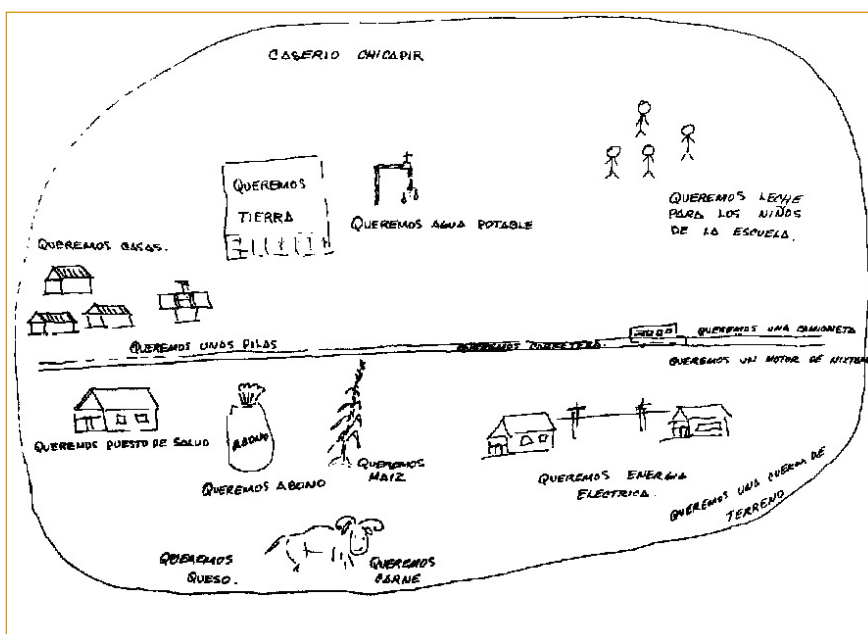 CASERIO CHICAPIR
QUEREMOS
TIERRA
QUEREMOS AGUA POTABLE
QUEREMOS LECHE
PARA LOS NIÑOS
DE LA ESCUELA.
QUEREMOS CASAS.
QUEREMOS UNAS PILAS
QUEREMOS CARRETERA.
QUEREMOS UNA CAMIONETA
QUEREMOS UN MOTOR DE NIXTAM
QUEREMOS PUESTO DE SALUD
ABONO
QUEREMOS ABONO
QUEREMOS
MAIZ
QUEREMOS ENERGIA
ELECTRICA.
QUEREMOS UNA CUERDA DE
TERRENO
QUEREMOS
QUESO.
QUEREMOS
CARNE